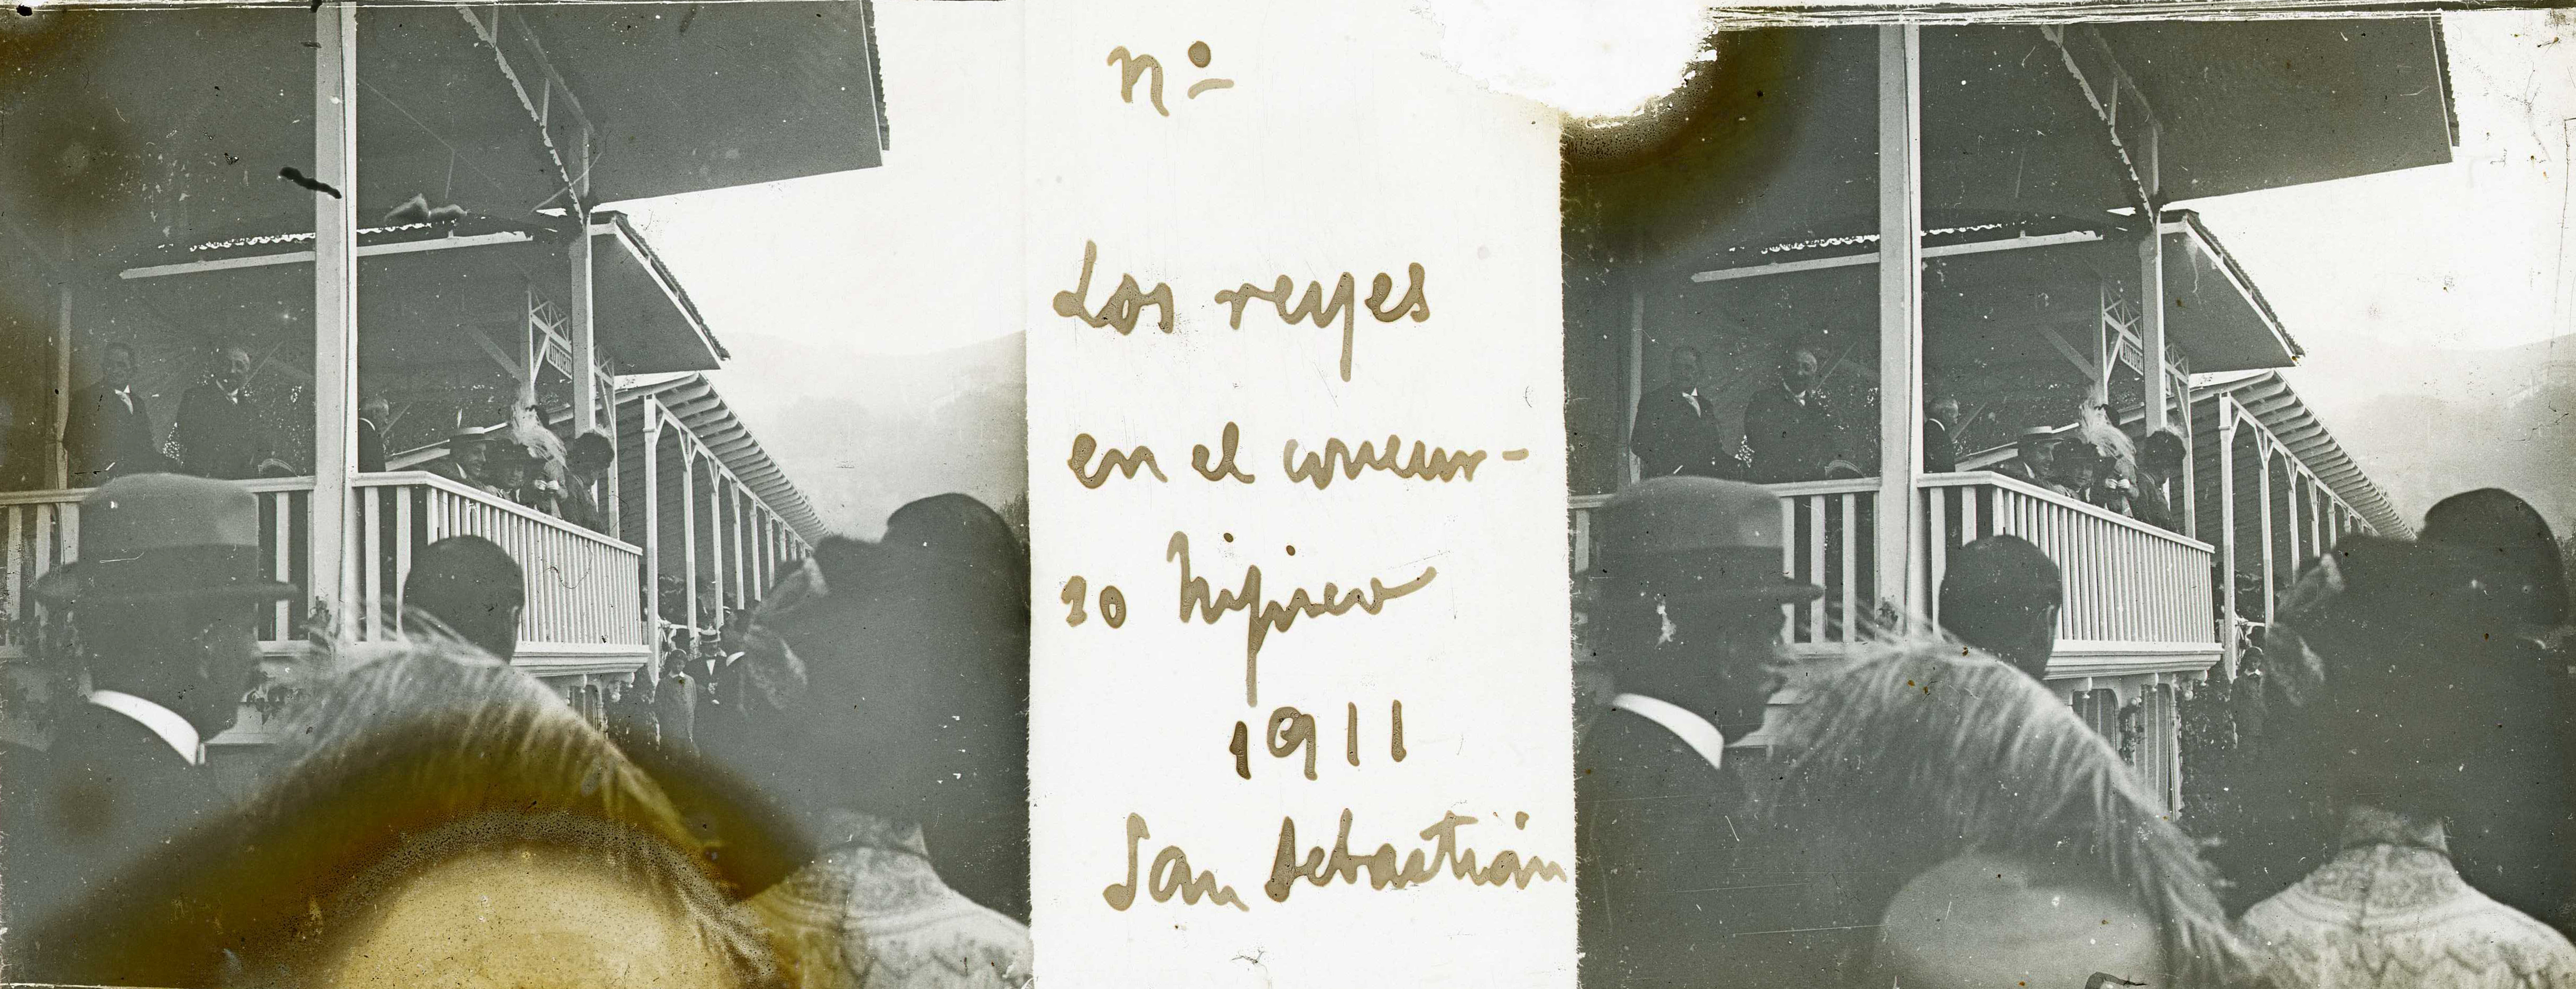 Nº
Los reyes
en el concur-
so hípico
1911
San Sebastián